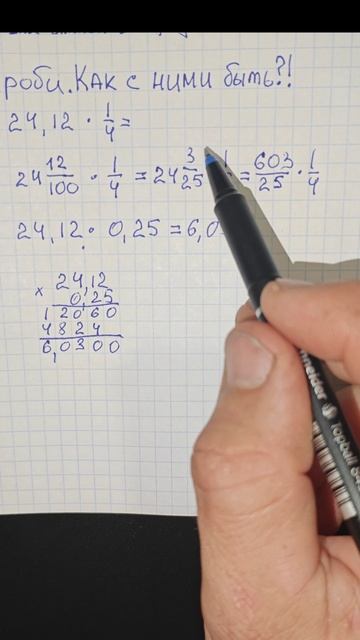 роби. Как с ними быть?!
24,12 · 1/4 =
24 12/100 · 1/4 = 24 3/25 = 603/25 · 1/4
24,12 · 0,25 = 6,0
24,12
× 0,25
12060
4824
6,0300
Schneider
Topball